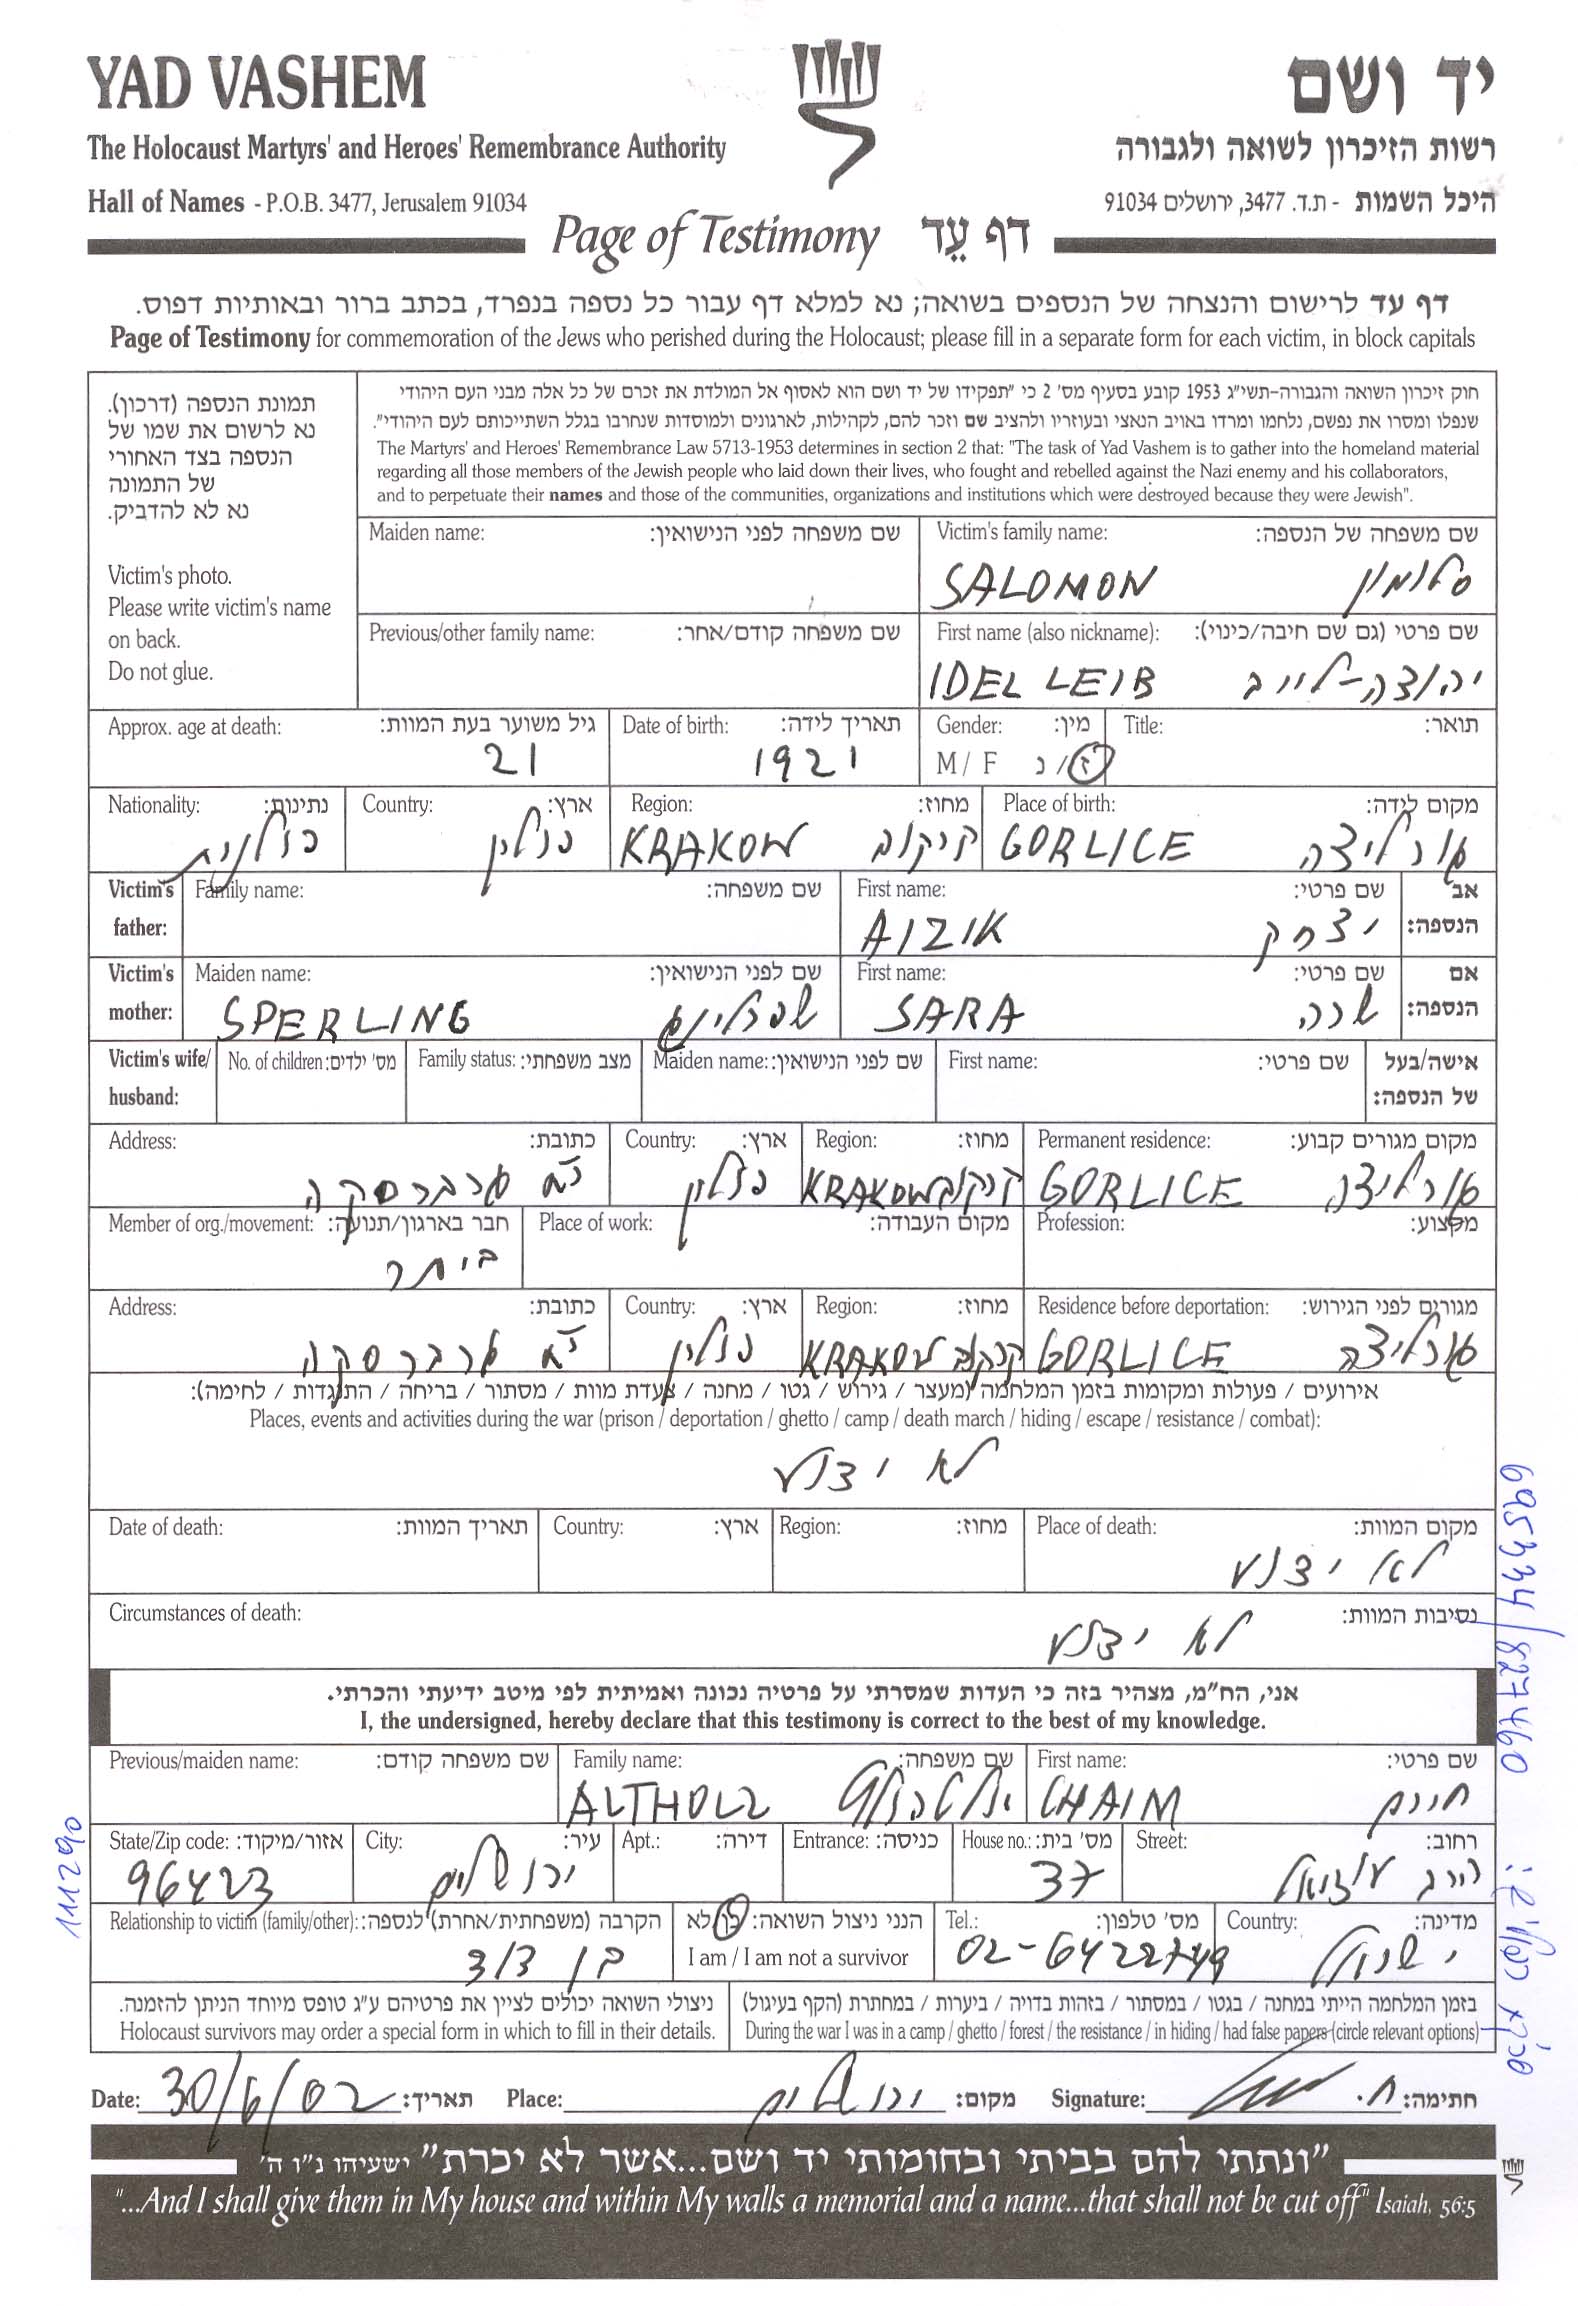 YAD VASHEM
יד ושם
The Holocaust Martyrs' and Heroes' Remembrance Authority
רשות הזיכרון לשואה ולגבורה
Hall of Names - P.O.B. 3477, Jerusalem 91034
היכל השמות - ת.ד. 3477, ירושלים 91034
Page of Testimony דף עֵד
דף עד לרישום והנצחה של הנספים בשואה; נא למלא דף עבור כל נספה בנפרד, בכתב ברור ובאותיות דפוס.
Page of Testimony for commemoration of the Jews who perished during the Holocaust; please fill in a separate form for each victim, in block capitals
תמונת הנספה (דרכון).
נא לרשום את שמו של
הנספה בצד האחורי
של התמונה
נא לא להדביק.
Victim's photo.
Please write victim's name
on back.
Do not glue.
חוק זיכרון השואה והגבורה-תשי"ג 1953 קובע בסעיף מס' 2 כי "תפקידו של יד ושם הוא לאסוף אל המולדת את זכרם של כל אלה מבני העם היהודי
שנפלו ומסרו את נפשם, נלחמו ומרדו באויב הנאצי ובעוזריו ולהציב שם וזכר להם, לקהילות, לארגונים ולמוסדות שנחרבו בגלל השתייכותם לעם היהודי".
The Martyrs' and Heroes' Remembrance Law 5713-1953 determines in section 2 that: "The task of Yad Vashem is to gather into the homeland material
regarding all those members of the Jewish people who laid down their lives, who fought and rebelled against the Nazi enemy and his collaborators,
and to perpetuate their names and those of the communities, organizations and institutions which were destroyed because they were Jewish".
Maiden name: שם משפחה לפני הנישואין:
Victim's family name: שם משפחה של הנספה:
SALOMON סלומון
Previous/other family name: שם משפחה קודם/אחר:
First name (also nickname): שם פרטי (גם שם חיבה/כינוי):
IDEL LEIB יהודה-לייב
Approx. age at death: גיל משוער בעת המוות:
21
Date of birth: תאריך לידה:
1921
Gender: מין:
M / F ז/נ
Title: תואר:
Nationality: נתינות:
פולנית
Country: ארץ:
פולין
Region: מחוז:
KRAKOW קרקוב
Place of birth: מקום לידה:
GORLICE גורליצה
Victim's father:
Family name: שם משפחה:
First name: שם פרטי:
AIZIK יצחק
אב הנספה:
Victim's mother:
Maiden name: שם לפני הנישואין:
SPERLING שפרלינג
First name: שם פרטי:
SARA שרה
אם הנספה:
Victim's wife/ husband:
No. of children: מס' ילדים:
Family status: מצב משפחתי:
Maiden name: שם לפני הנישואין:
First name: שם פרטי:
אישה/בעל של הנספה:
Address: כתובת:
Country: ארץ:
פולין
Region: מחוז:
KRAKOW קרקוב
Permanent residence: מקום מגורים קבוע:
GORLICE גורליצה
Member of org./movement: חבר בארגון/תנועה:
בית"ר
Place of work: מקום העבודה:
Profession: מקצוע:
Address: כתובת:
Country: ארץ:
פולין
Region: מחוז:
KRAKOW קרקוב
Residence before deportation: מגורים לפני הגירוש:
GORLICE גורליצה
אירועים / פעולות ומקומות בזמן המלחמה (מעצר / גירוש / גטו / מחנה / צעדת מוות / מסתור / בריחה / התנגדות / לחימה):
Places, events and activities during the war (prison / deportation / ghetto / camp / death march / hiding / escape / resistance / combat):
לא ידוע
Date of death: תאריך המוות:
Country: ארץ:
Region: מחוז:
Place of death: מקום המוות:
לא ידוע
Circumstances of death: נסיבות המוות:
לא ידוע
אני, הח"מ, מצהיר בזה כי העדות שמסרתי על פרטיה נכונה ואמיתית לפי מיטב ידיעתי והכרתי.
I, the undersigned, hereby declare that this testimony is correct to the best of my knowledge.
Previous/maiden name: שם משפחה קודם:
Family name: שם משפחה:
ALTHOLZ אלטהולץ
First name: שם פרטי:
CHAIM חיים
State/Zip code: אזור/מיקוד:
96423
City: עיר:
ירושלים
Apt.: דירה:
Entrance: כניסה:
House no.: מס' בית:
37
Street: רחוב:
הרב עוזיאל
Relationship to victim (family/other): הקרבה (משפחתית/אחרת) לנספה:
בן דוד
הנני ניצול השואה: כן/לא
I am / I am not a survivor
Tel.: מס' טלפון:
02-6422749
Country: מדינה:
ישראל
ניצולי השואה יכולים לציין את פרטיהם ע"ג טופס מיוחד הניתן להזמנה.
Holocaust survivors may order a special form in which to fill in their details.
בזמן המלחמה הייתי במחנה / בגטו / במסתור / בזהות בדויה / ביערות / במחתרת (הקף בעיגול)
During the war I was in a camp / ghetto / forest / the resistance / in hiding / had false papers (circle relevant options)
Date: 30/6/02 תאריך: Place: ירושלים מקום: Signature: ח. חתימה:
"ונתתי להם בביתי ובחומותי יד ושם...אשר לא יכרת" ישעיהו נ"ו ה'
"...And I shall give them in My house and within My walls a memorial and a name...that shall not be cut off" Isaiah, 56:5
111290
695334/827460